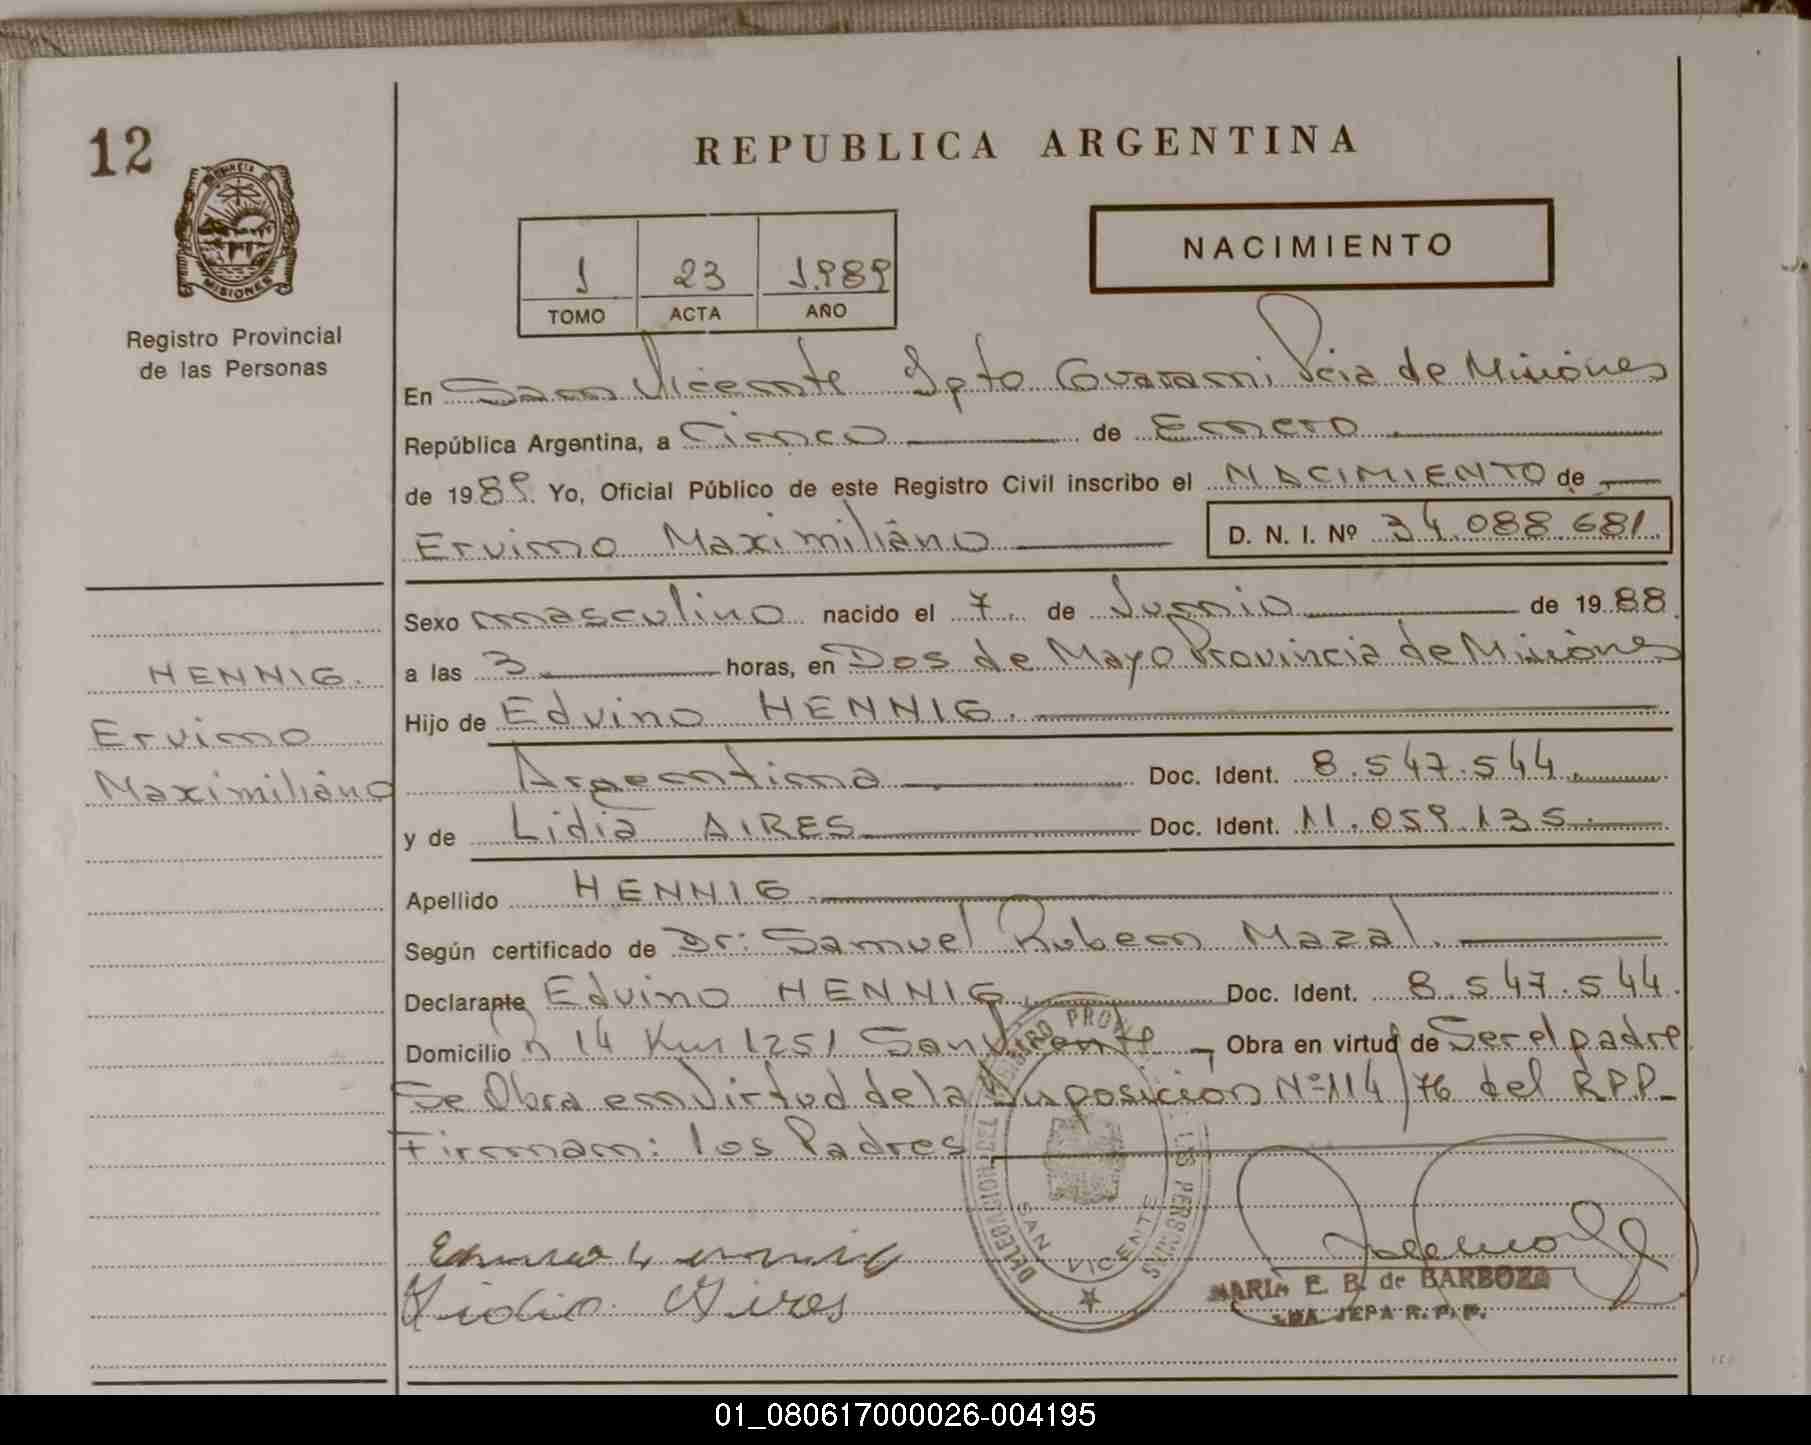 12
REPUBLICA ARGENTINA
MISIONES
NACIMIENTO
1 23 1.989
TOMO ACTA AÑO
Registro Provincial
de las Personas
En San Vicente Dpto Guarani Pcia de Misiones
República Argentina, a Cinco de Enero
de 1989. Yo, Oficial Público de este Registro Civil inscribo el NACIMIENTO de
Ervino Maximiliano D. N. I. Nº 34.088.681.
Sexo masculino nacido el 7 de Junio de 1988
a las 3 horas, en Dos de Mayo Provincia de Misiones
HENNIG.
Ervino
Maximiliano
Hijo de Edvino HENNIG.
Argentina Doc. Ident. 8.547.544
y de Lidia AIRES Doc. Ident. 11.059.135.
Apellido HENNIG
Según certificado de Dr: Samuel Ruben Mazal.
Declarante Edvino HENNIG Doc. Ident. 8.547.544.
Domicilio R 14 Km 1251 San Vicente, Obra en virtud de Ser el padre
Se Obra en Virtud de la Disposición Nº 114/76 del R.P.P.
Firman: los Padres
DELEGACION DEL REGISTRO PROV. LAS PERSONAS
SAN VICENTE
Lidia Aires
MARIA E. B. de BARBOZA
JEFA R. P. P.
01_080617000026-004195